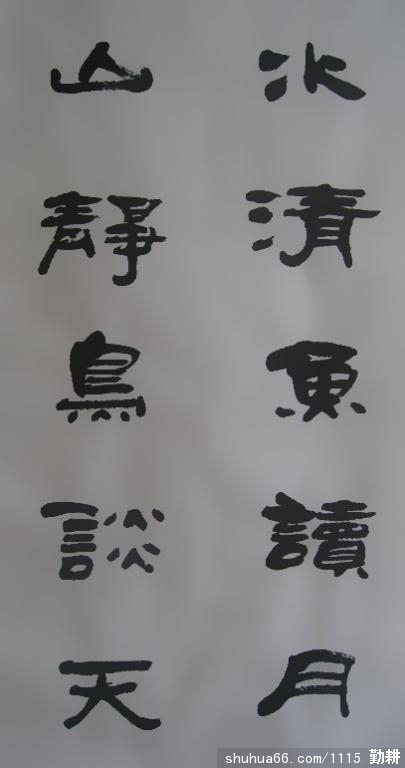 水清魚讀月
山靜鳥談天
shuhua66.com/1115 勤耕